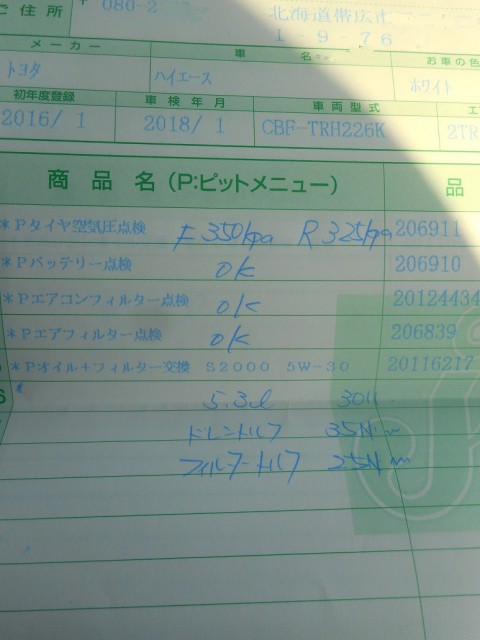 ご住所 080-2 北海道帯広市
1-9-76
メーカー 車名 お車の色
トヨタ ハイエース ホワイト
初年度登録 車検年月 車両型式
2016/ 1 2018/ 1 CBF-TRH226K 2TR
商品名(P:ピットメニュー) 品
*Pタイヤ空気圧点検 F 350kpa R 325kpa 206911
*Pバッテリー点検 OK 206910
*Pエアコンフィルター点検 OK 20124434
*Pエアフィルター点検 OK 206839
*Pオイル+フィルター交換 S2000 5W-30 20116217
5.3ℓ
ドレントルク 35N
フィルタートルク 25N